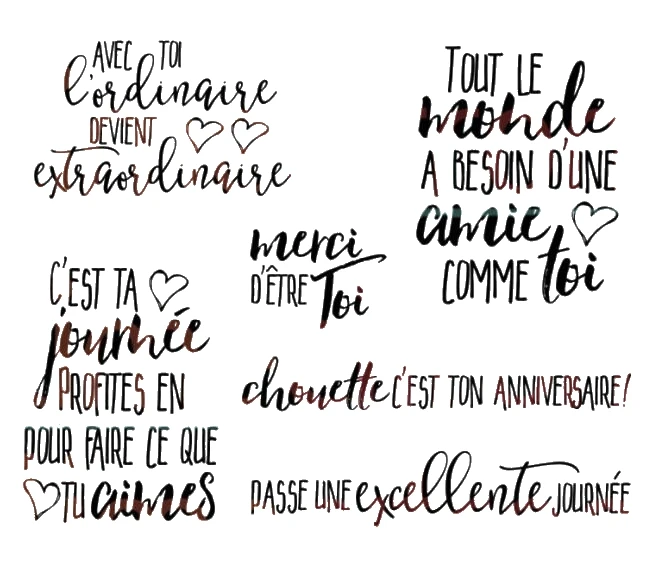 AVEC TOI
l'ordinaire
DEVIENT
extraordinaire
TOUT LE
monde
A BESOIN D'UNE
amie
COMME toi
merci
D'ÊTRE Toi
C'EST TA
journée
PROFITES EN
POUR FAIRE CE QUE
TU aimes
chouette C'EST TON ANNIVERSAIRE!
PASSE UNE excellente JOURNÉE